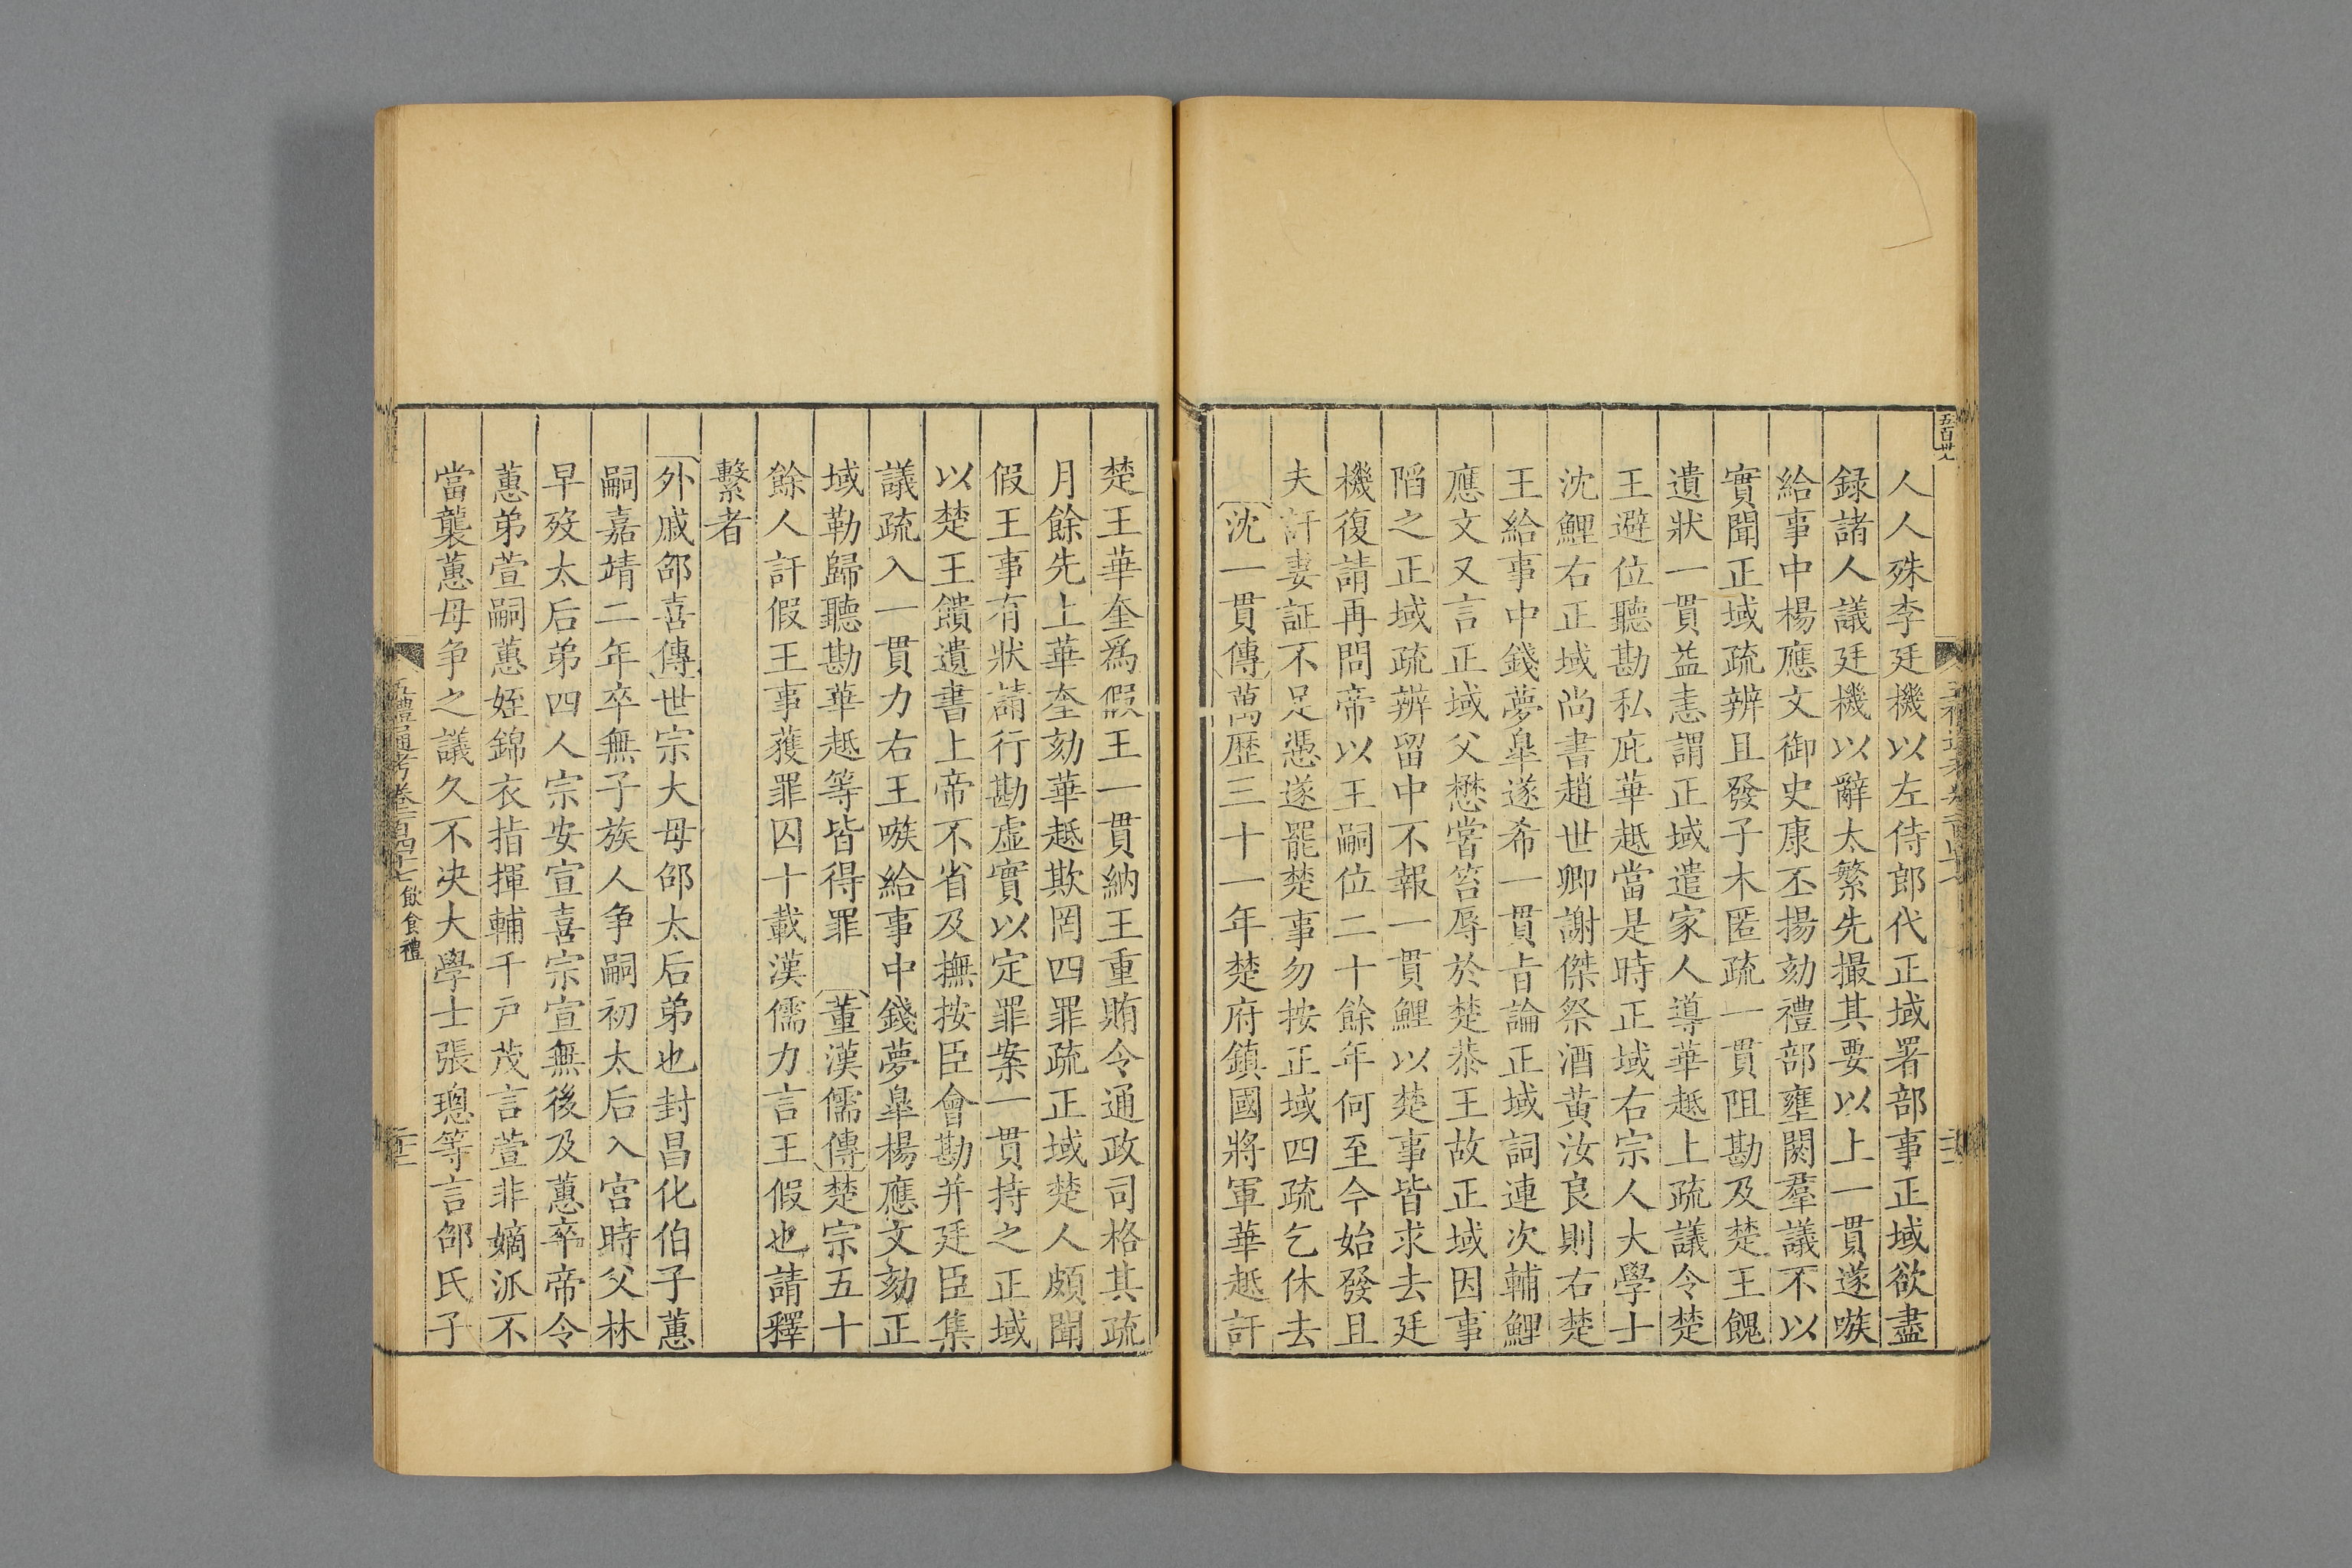 五百卅九
人人殊李廷機以左侍郎代正域署部事正域欲盡
録諸人議廷機以辭太繁先撮其要以上一貫遂嗾
給事中楊應文御史康丕揚劾禮部壅閼羣議不以
實聞正域疏辨且發子木匿疏一貫阻勘及楚王餽
遺狀一貫益恚謂正域遣家人導華趆上疏議令楚
王避位聽勘私庇華趆當是時正域右宗人大學士
沈鯉右正域尚書趙世卿謝傑祭酒黄汝良則右楚
王給事中錢夢臯遂希一貫㫖論正域詞連次輔鯉
應文又言正域父懋嘗笞辱於楚恭王故正域因事
陷之正域疏辨留中不報一貫鯉以楚事皆求去廷
機復請再問帝以王嗣位二十餘年何至今始發且
夫訐妻証不足憑遂罷楚事勿按正域四疏乞休去
沈一貫傳萬歴三十一年楚府鎮國將軍華趆訐
楚王華奎爲假王一貫納王重賄令通政司格其疏
月餘先上華奎劾華趆欺罔四罪疏正域楚人頗聞
假王事有狀請行勘虚實以定罪案一貫持之正域
以楚王饋遺書上帝不省及撫按臣會勘并廷臣集
議疏入一貫力右王嗾給事中錢夢臯楊應文劾正
域勒歸聽勘華趆等皆得罪 董漢儒傳楚宗五十
餘人訐假王事蒦罪囚十載漢儒力言王假也請釋
繫者
外戚邵喜傳世宗大母邵太后弟也封昌化伯子蕙
嗣嘉靖二年卒無子族人爭嗣初太后入宫時父林
早歿太后弟四人宗安宣喜宗宣無後及蕙卒帝令
蕙弟萱嗣蕙姪錦衣指揮輔千戸茂言萱非嫡派不
當襲蕙母争之議久不決大學士張璁等言邵氏子
五禮通考卷一百四十七 飲食禮